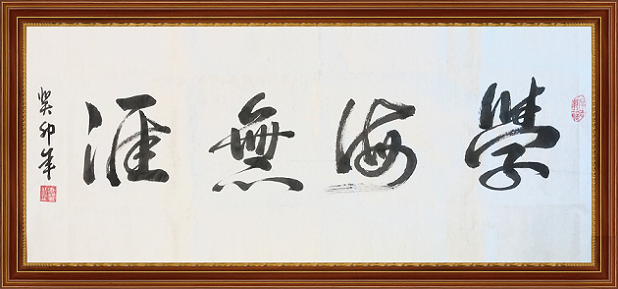 學海無涯
癸卯年